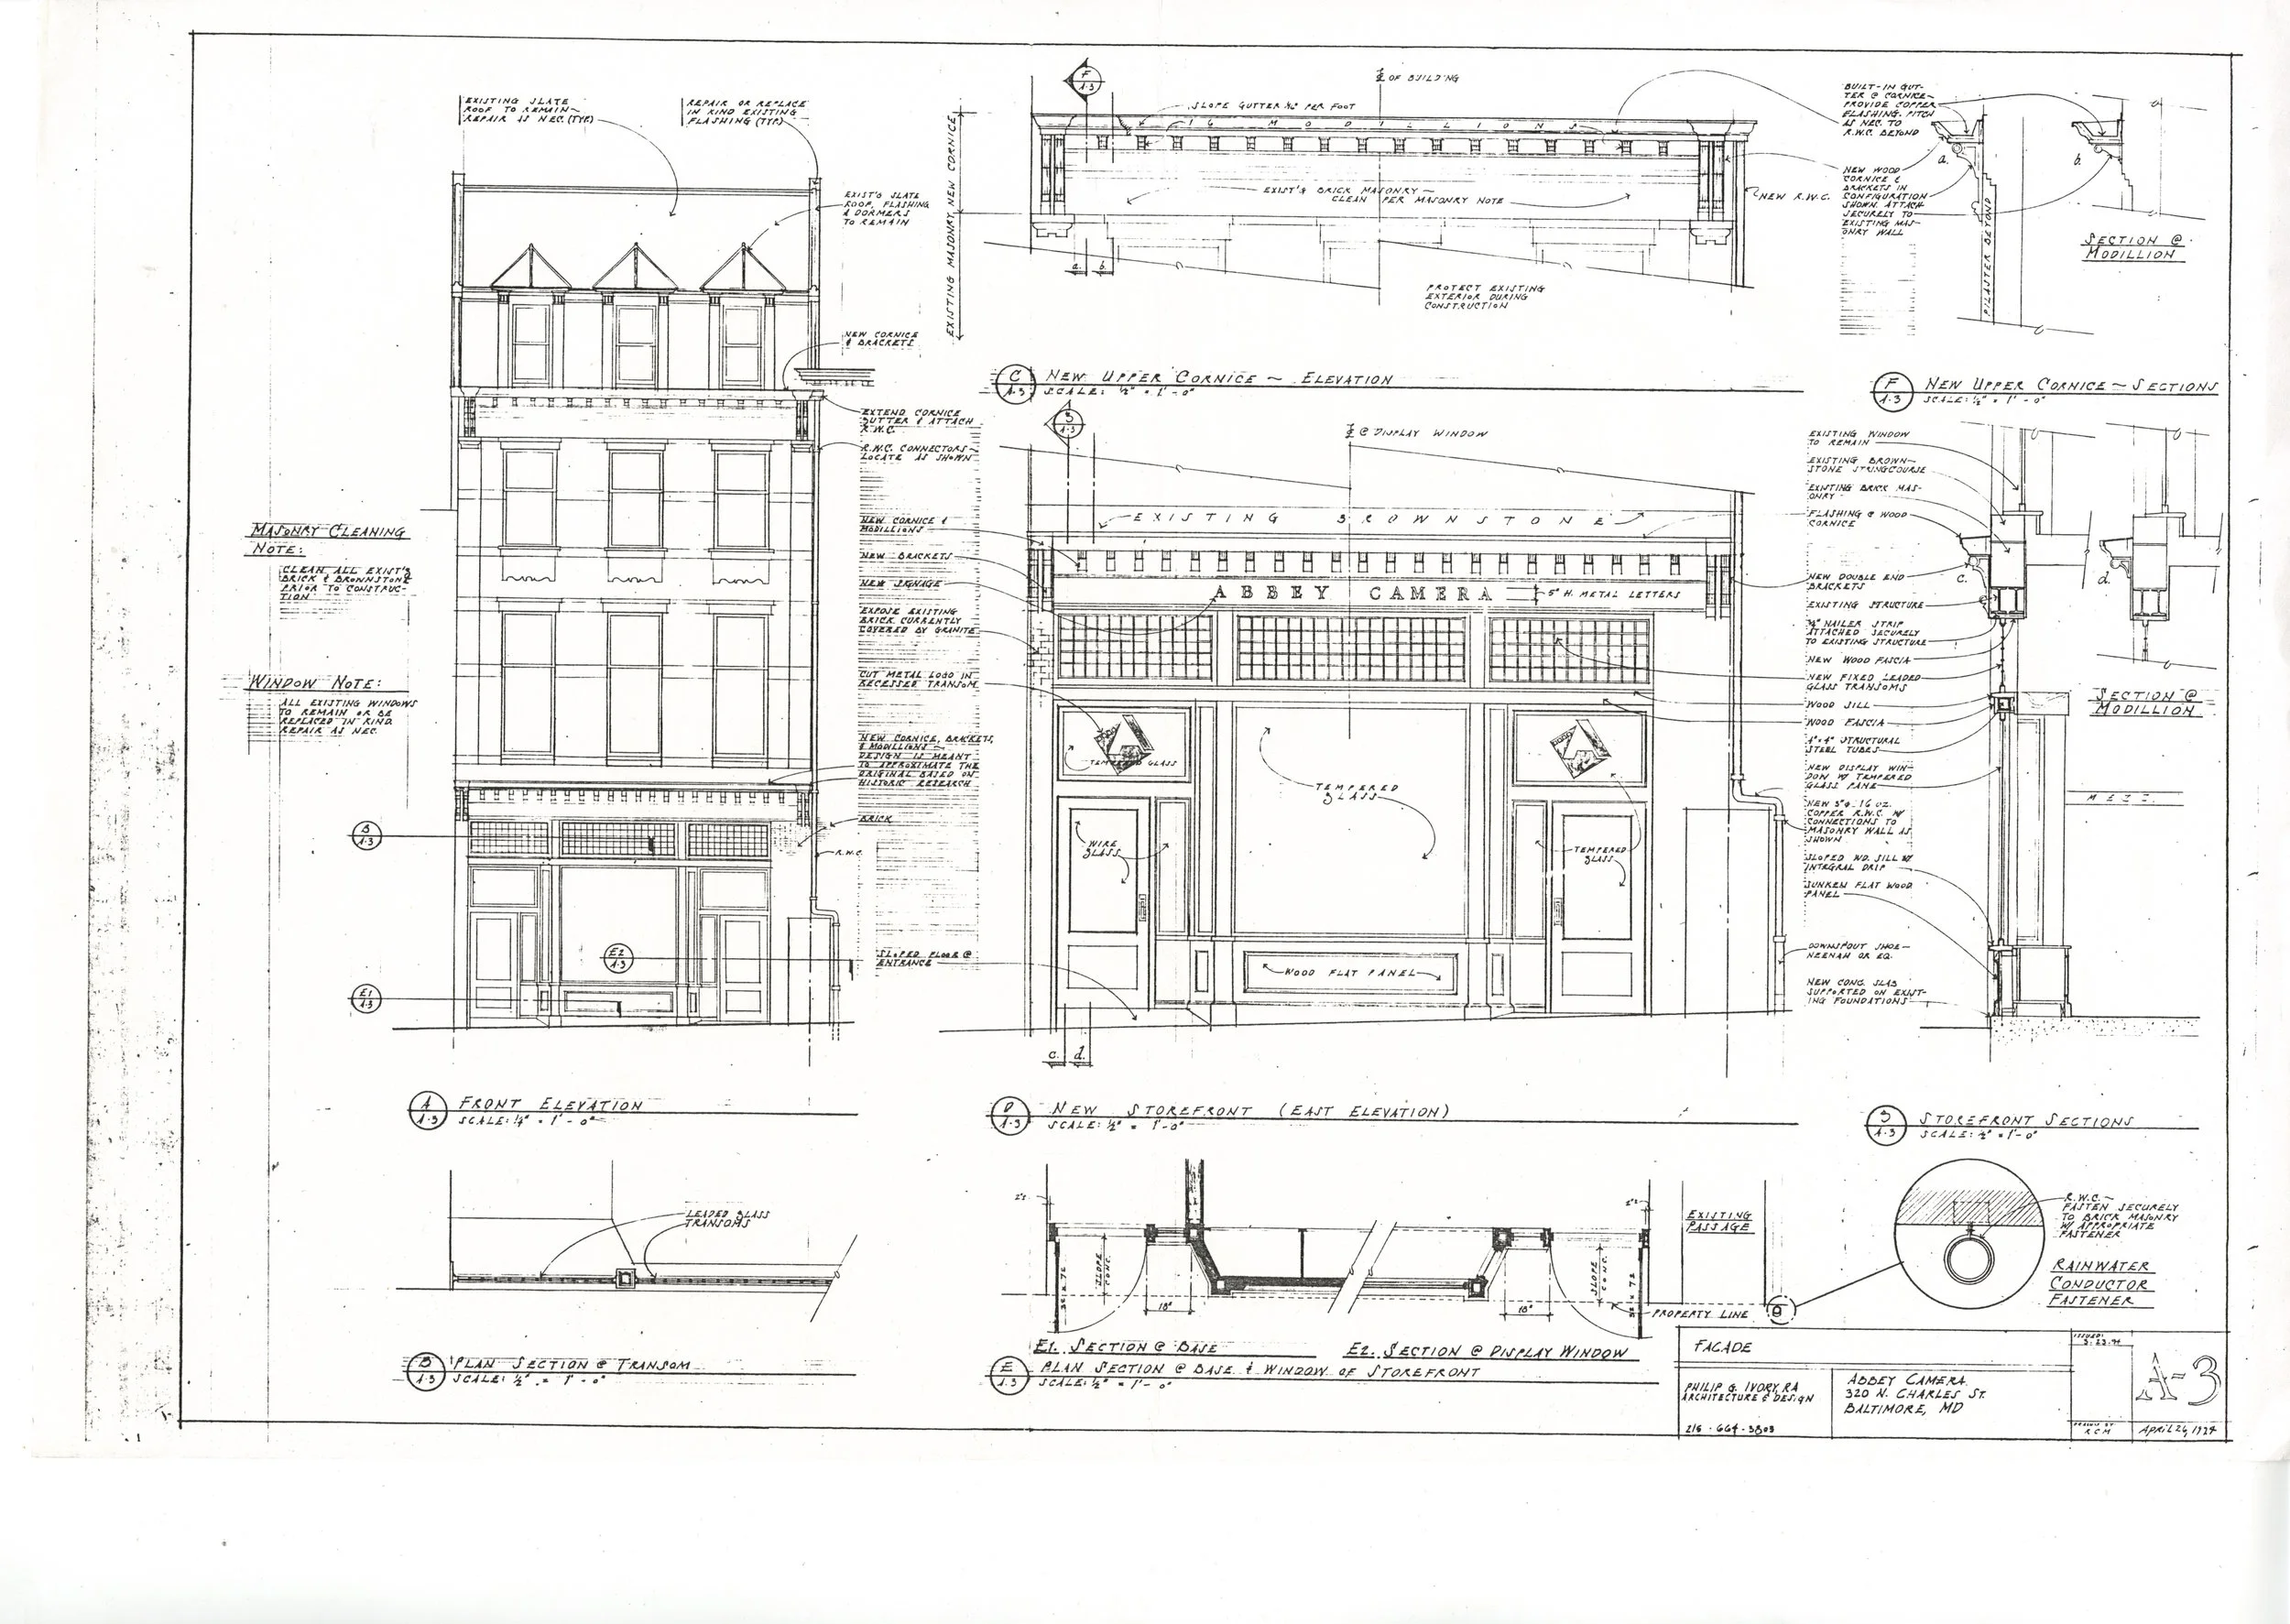 EXISTING SLATE
ROOF TO REMAIN~
REPAIR AS NEC. (TYP.)
REPAIR OR REPLACE
IN KIND EXISTING
FLASHING (TYP.)
EXIST'G SLATE
ROOF, FLASHING
& DORMERS
TO REMAIN
NEW CORNICE
& BRACKETS
EXTEND CORNICE
GUTTER & ATTACH
R.W.C.
R.W.C. CONNECTORS~
LOCATE AS SHOWN
MASONRY CLEANING
NOTE:
CLEAN ALL EXIST'G
BRICK & BROWNSTONE
PRIOR TO CONSTRUC-
TION
WINDOW NOTE:
ALL EXISTING WINDOWS
TO REMAIN OR BE
REPLACED IN KIND.
REPAIR AS NEC.
NEW CORNICE &
MODILLIONS
NEW BRACKETS
NEW SIGNAGE
EXPOSE EXISTING
BRICK CURRENTLY
COVERED BY GRANITE
CUT METAL LOGO IN
RECESSED TRANSOM
NEW CORNICE, BRACKETS,
& MODILLIONS ~
DESIGN IS MEANT
TO APPROXIMATE THE
ORIGINAL BASED ON
HISTORIC RESEARCH
BRICK
R.W.C.
SLOPED FLOOR @
ENTRANCE
B
A-3
E2
A-3
E1
A-3
A
A-3
FRONT ELEVATION
SCALE: ¼" = 1'-0"
F
A-3
℄ OF BUILDING
SLOPE GUTTER 1/16" PER FOOT
16 MODILLIONS
EXISTING MASONRY NEW CORNICE
EXIST'G BRICK MASONRY ~
CLEAN PER MASONRY NOTE
NEW R.W.C.
a. b.
PROTECT EXISTING
EXTERIOR DURING
CONSTRUCTION
C
A-3
NEW UPPER CORNICE ~ ELEVATION
SCALE: ½" = 1'-0"
BUILT-IN GUT-
TER @ CORNICE~
PROVIDE COPPER
FLASHING. PITCH
AS NEC. TO
R.W.C. BEYOND
NEW WOOD
CORNICE &
BRACKETS IN
CONFIGURATION
SHOWN. ATTACH
SECURELY TO
EXISTING MAS-
ONRY WALL
a.
b.
PILASTER BEYOND
SECTION @
MODILLION
F
A-3
NEW UPPER CORNICE ~ SECTIONS
SCALE: ½" = 1'-0"
℄ @ DISPLAY WINDOW
EXISTING BROWNSTONE
ABBEY CAMERA
5" H. METAL LETTERS
TEMPERED GLASS
TEMPERED
GLASS
WIRE
GLASS
TEMPERED
GLASS
WOOD FLAT PANEL
c. d.
D
A-3
NEW STOREFRONT (EAST ELEVATION)
SCALE: ½" = 1'-0"
EXISTING WINDOW
TO REMAIN
EXISTING BROWN-
STONE STRINGCOURSE
EXISTING BRICK MAS-
ONRY
FLASHING @ WOOD
CORNICE
NEW DOUBLE END
BRACKETS
EXISTING STRUCTURE
NAILER STRIP
ATTACHED SECURELY
TO EXISTING STRUCTURE
NEW WOOD FASCIA
NEW FIXED LEADED
GLASS TRANSOMS
WOOD SILL
WOOD FASCIA
4"x4" STRUCTURAL
STEEL TUBES
NEW DISPLAY WIN-
DOW W/ TEMPERED
GLASS PANE
NEW 3"φ 16 OZ.
COPPER R.W.C. W/
CONNECTIONS TO
MASONRY WALL AS
SHOWN
SLOPED WD. SILL W/
INTEGRAL DRIP
SUNKEN FLAT WOOD
PANEL
DOWNSPOUT SHOE~
NEENAH OR EQ.
NEW CONC. SLAB
SUPPORTED ON EXIST-
ING FOUNDATIONS
c.
d.
SECTION @
MODILLION
MEZZ.
A-3
STOREFRONT SECTIONS
SCALE: ½" = 1'-0"
LEADED GLASS
TRANSOMS
B
A-3
PLAN SECTION @ TRANSOM
SCALE: ½" = 1'-0"
SLOPE
CONC.
18"
SLOPE
CONC.
18"
EXISTING
PASSAGE
PROPERTY LINE
E1. SECTION @ BASE
E2. SECTION @ DISPLAY WINDOW
E
A-3
PLAN SECTION @ BASE & WINDOW OF STOREFRONT
SCALE: ½" = 1'-0"
R.W.C.~
FASTEN SECURELY
TO BRICK MASONRY
W/ APPROPRIATE
FASTENER
RAINWATER
CONDUCTOR
FASTENER
FACADE
PHILIP G. IVORY, RA
ARCHITECTURE & DESIGN
ABBEY CAMERA
320 N. CHARLES ST.
BALTIMORE, MD
ISSUED:
3.23.94
A-3
DRAWN BY
RCM